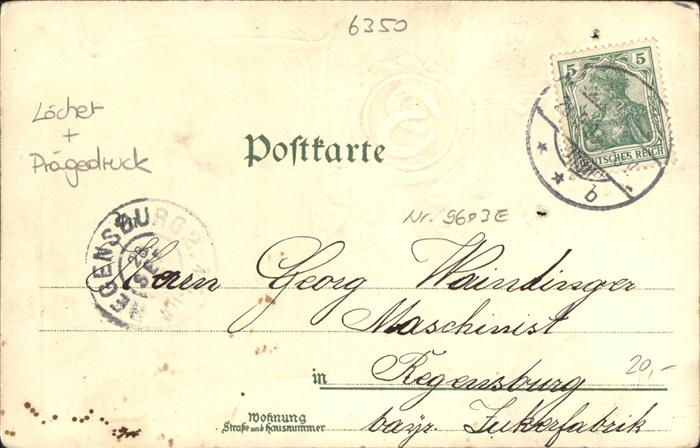 6350
Löcher
+
Prägedruck
5 5
DEUTSCHES REICH
b
Postkarte
Nr. 9603E
REGENSBURG 2.
28
SE
Herrn Georg Waindinger
Maschinist
20,-
in Regensburg
Wohnung
Straße und Hausnummer
bayr. Zukerfabrik